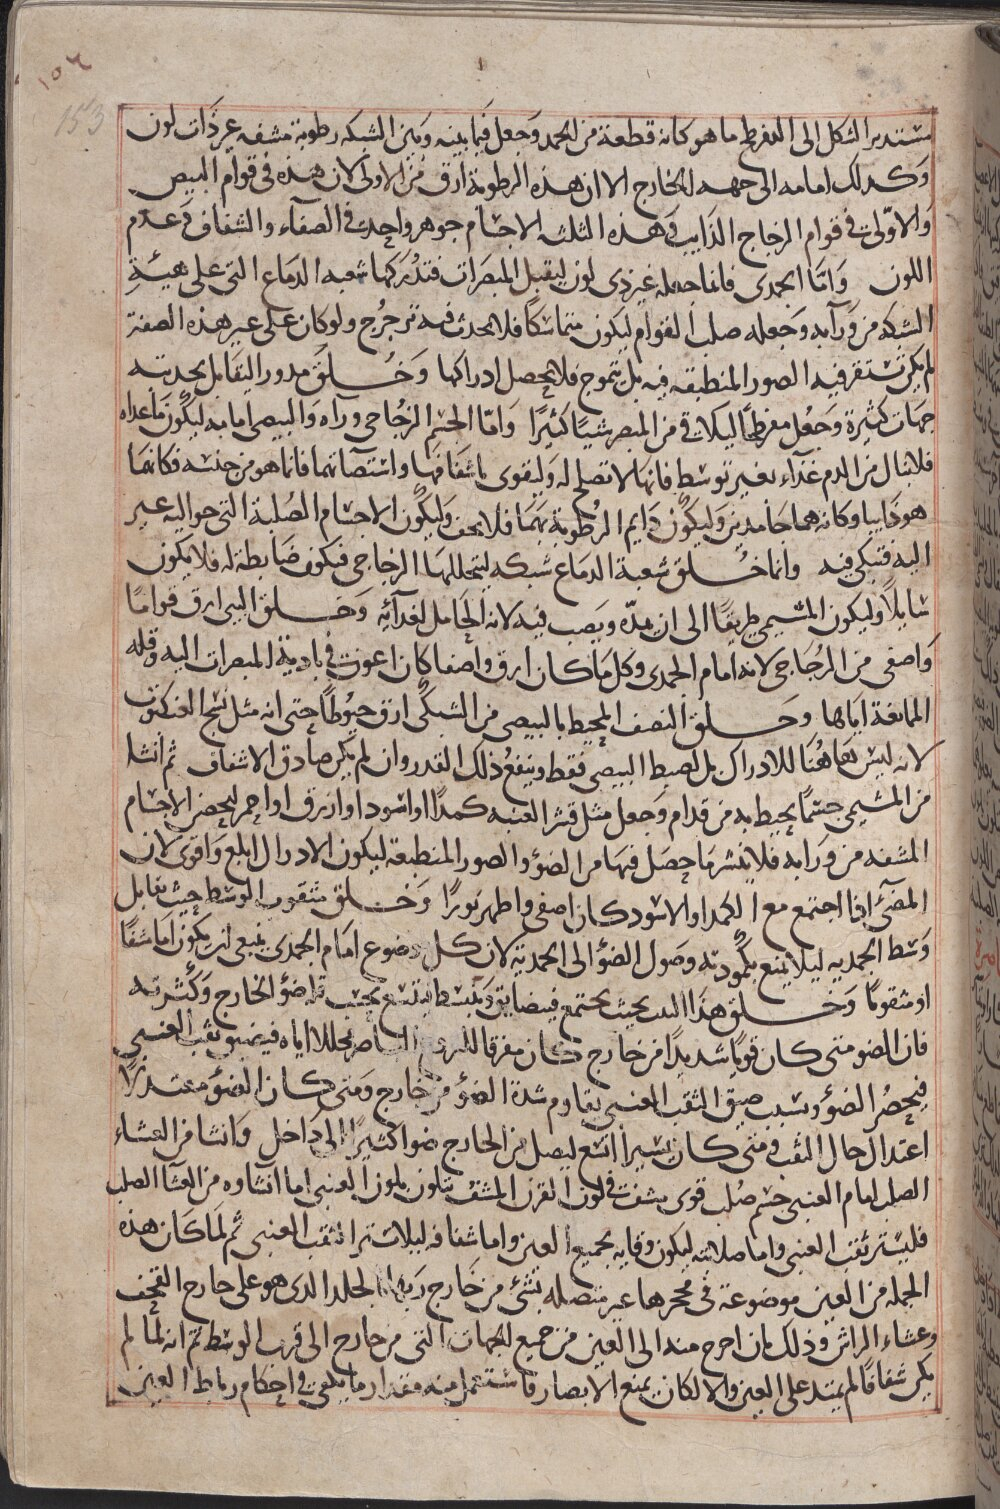 ١٥٢
153
مستدير الشكل الى التفرطح ما هو كانه قطعة من الجمد وجعل فيما بينه وبين الشبكه رطوبة مشفه غير ذات لون
وكذلك امامه الى جهه الخارج الا ان هذه الرطوبة ارق من الاولى لان هذه فى قوام البيض
والاولى فى قوام الزجاج الذايب وهذه الثلثه الاجسام جوهر واحد فى الصفآء والشفاف وعدم
اللون وامّا الجمدى فانما جعله غير ذى لون ليقبل المبصرات فتدركها شعبه الدماغ التى على هيئة
الشبكه من ورآيه وجعله صلب القوام ليكون متماسكًا فلا يحدث فيه ترجرج ولو كان على غير هذه الصفة
لم يكن تستقر فيه الصور المنطبقه فيه بل يتموج فلا يحصل ادراكها وخلق مدور التقابل بحدبته
جهات كثيرة وجعل مفرطحًا ليلاقى من المبصر شيئا كثيرًا وامّا الجسم الزجاجى وراه والبيضى امامه ليكونا غذاه
فلا ينال من الدم غذآء بغير توسط فانها لا تصلح له وليقوى باشفافهما واستضآتهما فانما هو من جنسه فكانهما
هو ذايبا وكانه هما جامدين وليكون دايم الرطوبة بهما فلا يجف وليكون الاجسام الصلبة التى حواليه غير
اليه فتنكى فيه وانما خلق شعبة الدماغ شبكه ليتخللها الزجاجى فتكون ضابطة له فلا يكون
سايلا وليكون المشيمى طريقًا الى ان يمدّه ويصب فيه لانه الحامل لغدآئه وخلق البيضى ارق قوامًا
واصفى من الزجاجى لانه امام الجمدى وكل ما كان ارق واصفا كان اعون فى تادية المبصرات اليه وقله
الممانعة اياها وخلق النصف المحيط بالبيضى من الشبكى ارق خيوطًا حتى انه مثل نسج العنكبوت
لانه ليس هاهنا للادراك بل لضبط البيضى فقط وينفع ذلك القدر وان لم يكن صادق الاشفاف ثم انشا
من المشيمى جسمًا يحيط به من قدام وجعل مثل قشر العنبه كمدًا او اسود او ازرق او احمر ليحضر الاجسام
المشفه من ورايه فلا ينشر ما حصل فيها من الضؤ والصور المنطبقه ليكون الادراك ابلغ واقوى لان
المضئ اذا اجتمع مع الكمد او الاسود كان اصفى واظهر نورًا وخلق مثقوب الوسط حيث يقابل
وسط الجمديه ليلا يمنع بكمودته وصول الضؤ الى الجمديه لان كل موضوع امام الجمدى ينبغى ان يكون اما مشفًا
او مثقوبًا وخلق هذا الثقب بحيث يجتمع فيضايق وينبسط فيتسع بحسب قلة ضؤ الخارج وكثرته
فان الضو متى كان قويًا شديدًا من خارج كان مفرقا للنور الباصر محللا اياه فيضيق ثقب العنبى
فيحصر الضؤ وبسبب ضيق الثقب العنبى يقاوم شدة الضؤ من خارج ومتى كان الضؤ معتدلًا
اعتدل حال الثقب ومتى كان يسيرا اتسع ليصل من الخارج ضوا كثيرًا الى داخل وانشا من الغشاء
الصلب امام العنبى جسم صلب قوى مشف فى لون القرن المشف يتلون بلون العنبى اما انشاوه من الغشا الصلب
فليستر ثقب العنبى واما صلابته ليكون وقايه لجميع العين واما شفافه ليلا يستر الثقب العنبى ثم لما كان هذه
الجمله من العين موضوعة فى محجرها غير متصله بشئ من خارج ربطها بالجلد الذى هو على خارج القحف
وغشاء الراس وذلك بان اخرج منه الى العين من جميع الجهات التى من خارج الى قرب الوسط ثم انه لما لم
يكن شفافًا لم يمتد على العين والا لكان يمنع الابصار فاستعمل منه مقدار ما يكفى فى احكام رباط العين